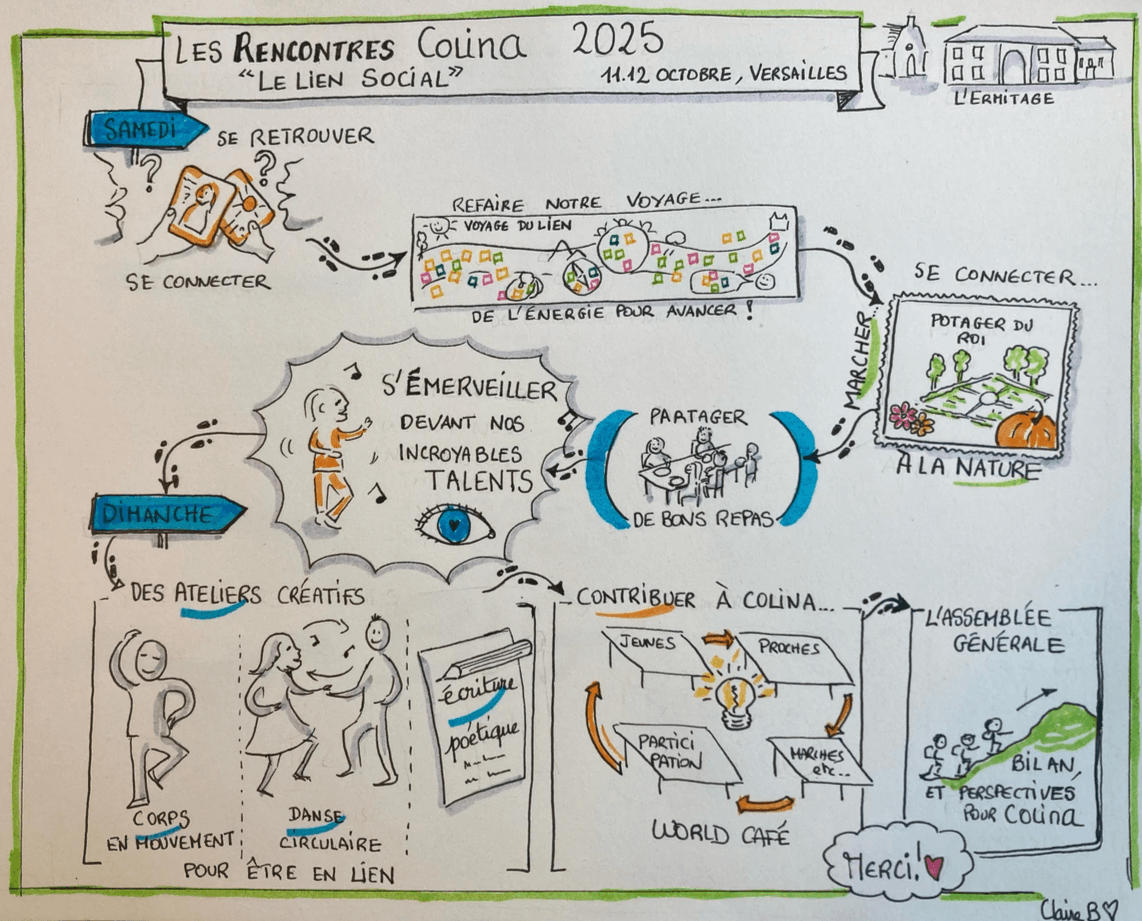 LES RENCONTRES Colina 2025
"LE LIEN SOCIAL"
11.12 OCTOBRE, VERSAILLES
L'ERMITAGE
SAMEDI
SE RETROUVER
?
?
SE CONNECTER
REFAIRE NOTRE VOYAGE...
VOYAGE DU LIEN
DE L'ÉNERGIE POUR AVANCER !
MARCHER
SE CONNECTER...
POTAGER DU
ROI
À LA NATURE
PARTAGER
DE BONS REPAS
S'ÉMERVEILLER
DEVANT NOS
INCROYABLES
TALENTS
DIMANCHE
DES ATELIERS CRÉATIFS
CORPS
EN MOUVEMENT
DANSE
CIRCULAIRE
écriture
poétique
POUR ÊTRE EN LIEN
CONTRIBUER À COLINA...
JEUNES
PROCHES
PARTICI
PATION
MARCHES
etc...
WORLD CAFÉ
L'ASSEMBLÉE
GÉNÉRALE
BILAN
ET PERSPECTIVES
POUR Colina
MERCI!
Claire B